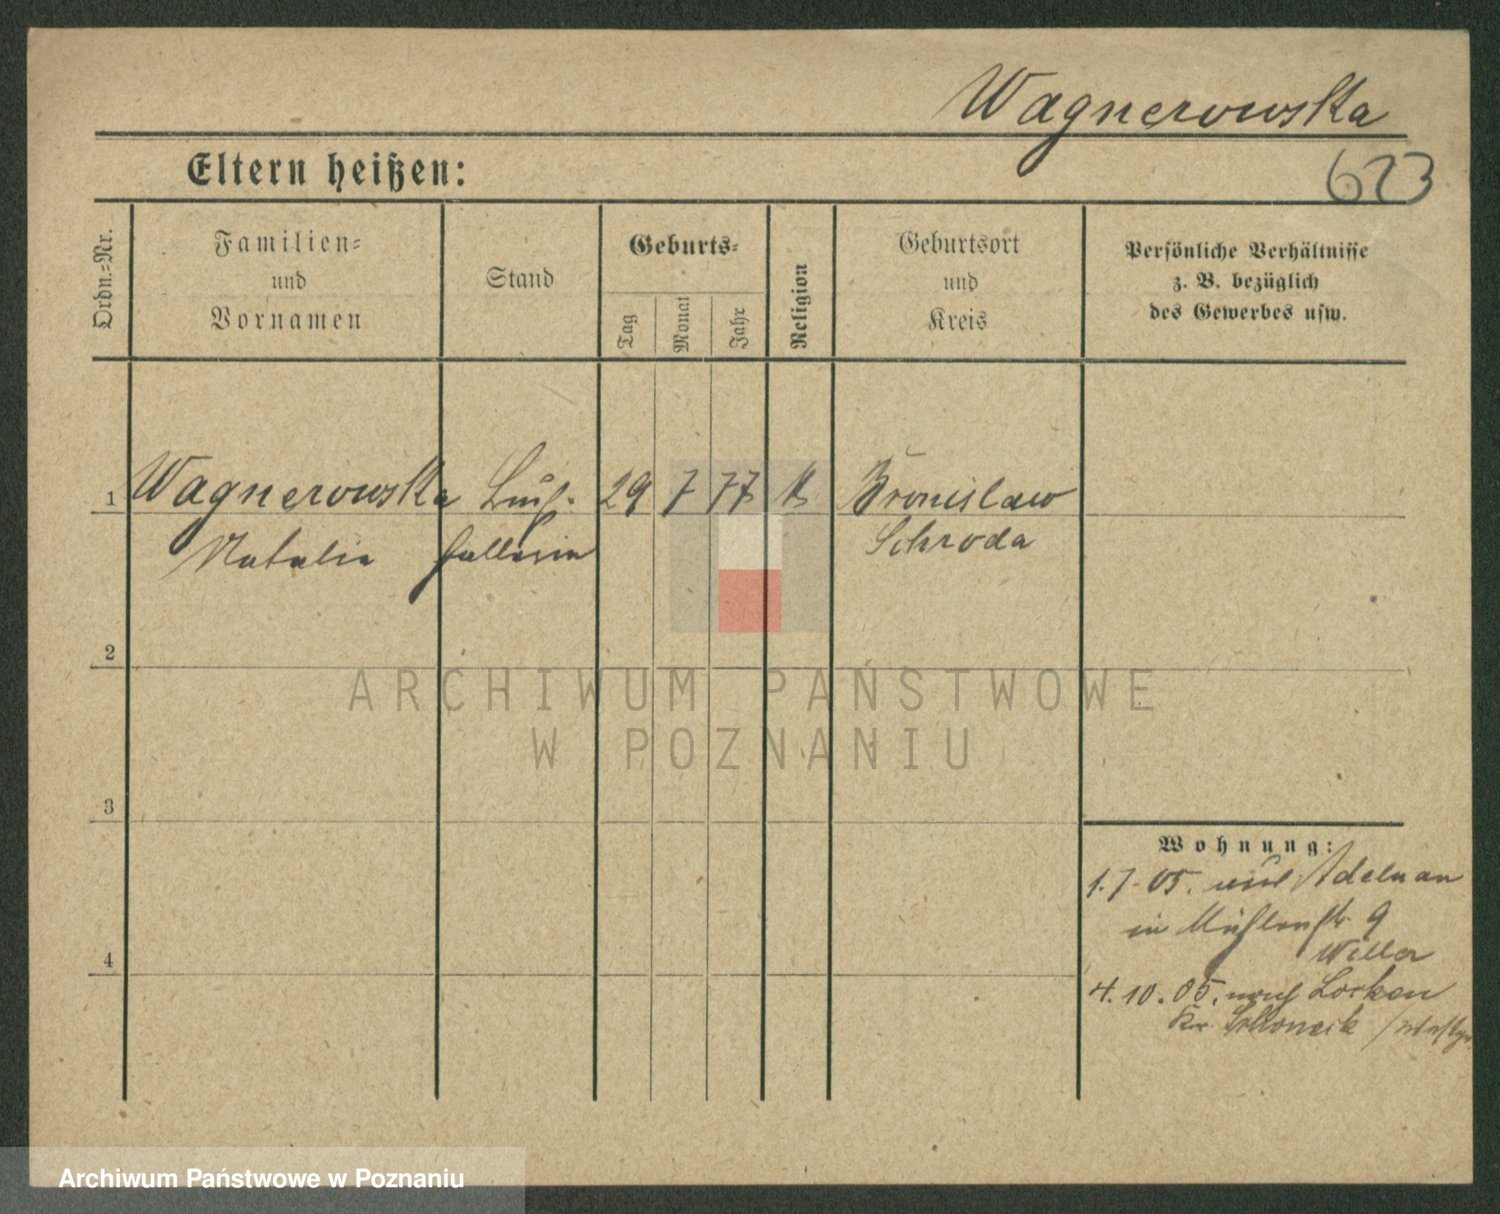 Wagnerowska
623
Eltern heißen:
Ordn.-Nr.
Familien-
und
Vornamen
Stand
Geburts-
Tag
Monat
Jahr
Religion
Geburtsort
und
Kreis
Persönliche Verhältnisse
z. B. bezüglich
des Gewerbes usw.
1 Wagnerowska Buch- 29 7 77 k Bronislaw
Natalie halterin Schroda
2
3
4
Wohnung:
1.7.05. aus Adelnau
in Mühlenstr. 9
4.10.05. nach
Kr.
ARCHIWUM PAŃSTWOWE
W POZNANIU
Archiwum Państwowe w Poznaniu